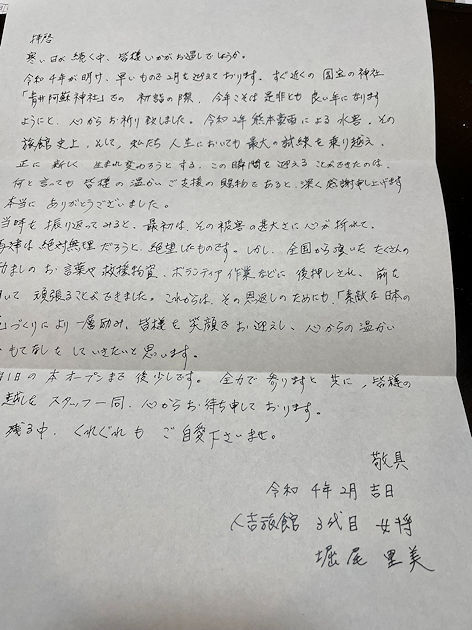 拝啓
寒い日が続く中、皆様いかがお過しでしょうか。
令和4年が明け、早いもので2月を迎えております。すぐ近くの国宝の神社
「青井阿蘇神社」での初詣の際、今年こそは是非とも良い年になります
ようにと、心からお祈り致しました。令和2年熊本豪雨による水害、その
旅館史上、そして、私たち人生においても最大の試練を乗り越え、
正に新しく生まれ変わろうとする、この瞬間を迎えることができたのは、
何と言っても皆様の温かいご支援の賜物であると、深く感謝申し上げます
本当にありがとうございました。
当時を振り返ってみると、最初は、その被害の甚大さに心が折れて、
は絶対無理だろうと、絶望したものです。しかし、全国から頂いたたくさんの
励ましのお言葉や救援物資、ボランティア作業などに後押しされ、前を
いて頑張ることができました。これからは、その恩返しのためにも、「素敵な日本の
づくりにより一層励み、皆様を笑顔でお迎えし、心からの温かい
もてなしをしていきたいと思います。
1日の本オープンまで後少しです。全力で参りますと共に、皆様の
越しをスタッフ一同、心からお待ち申しております。
残る中、くれぐれもご自愛下さいませ。
敬具
令和4年2月吉日
人吉旅館 3代目女将
堀尾里美